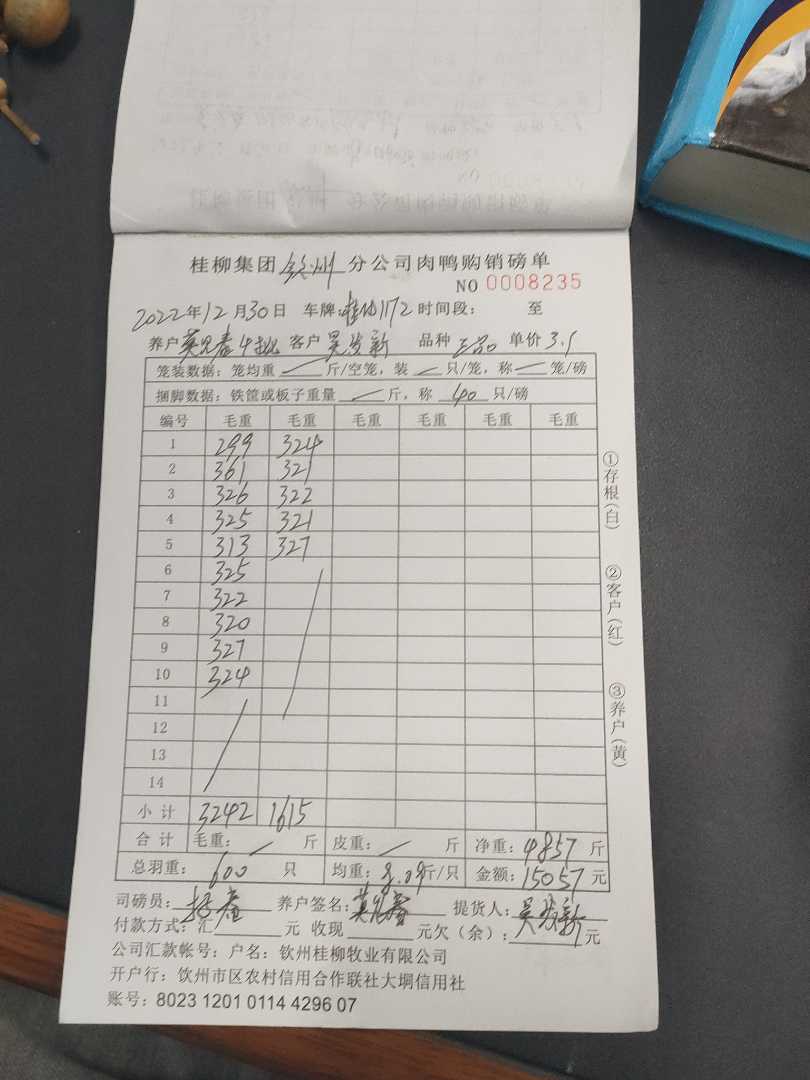 桂柳集团 钦州 分公司肉鸭购销磅单
NO 0008235
2022年12月30日 车牌:桂N 1172 时间段: 至
养户 4批 客户 吴发新 品种 三品 单价 3.1
笼装数据: 笼均重 斤/空笼, 装 只/笼, 称 笼/磅
捆脚数据: 铁筐或板子重量 斤, 称 40 只/磅
编号 毛重 毛重 毛重 毛重 毛重 毛重
1 299 324
2 361 321
3 326 322
4 325 321
5 313 327
6 325
7 322
8 320
9 327
10 324
11
12
13
14
小计 3242 1615
合计 毛重: 斤 皮重: 斤 净重: 4857 斤
总羽重: 600 只 均重: 8.09斤/只 金额: 15057 元
司磅员: 养户签名: 提货人: 吴发新
付款方式: 汇 元 收现 元欠(余): 元
公司汇款帐号: 户名: 钦州桂柳牧业有限公司
开户行: 钦州市区农村信用合作联社大垌信用社
账号: 8023 1201 0114 4296 07
①存根(白)
②客户(红)
③养户(黄)